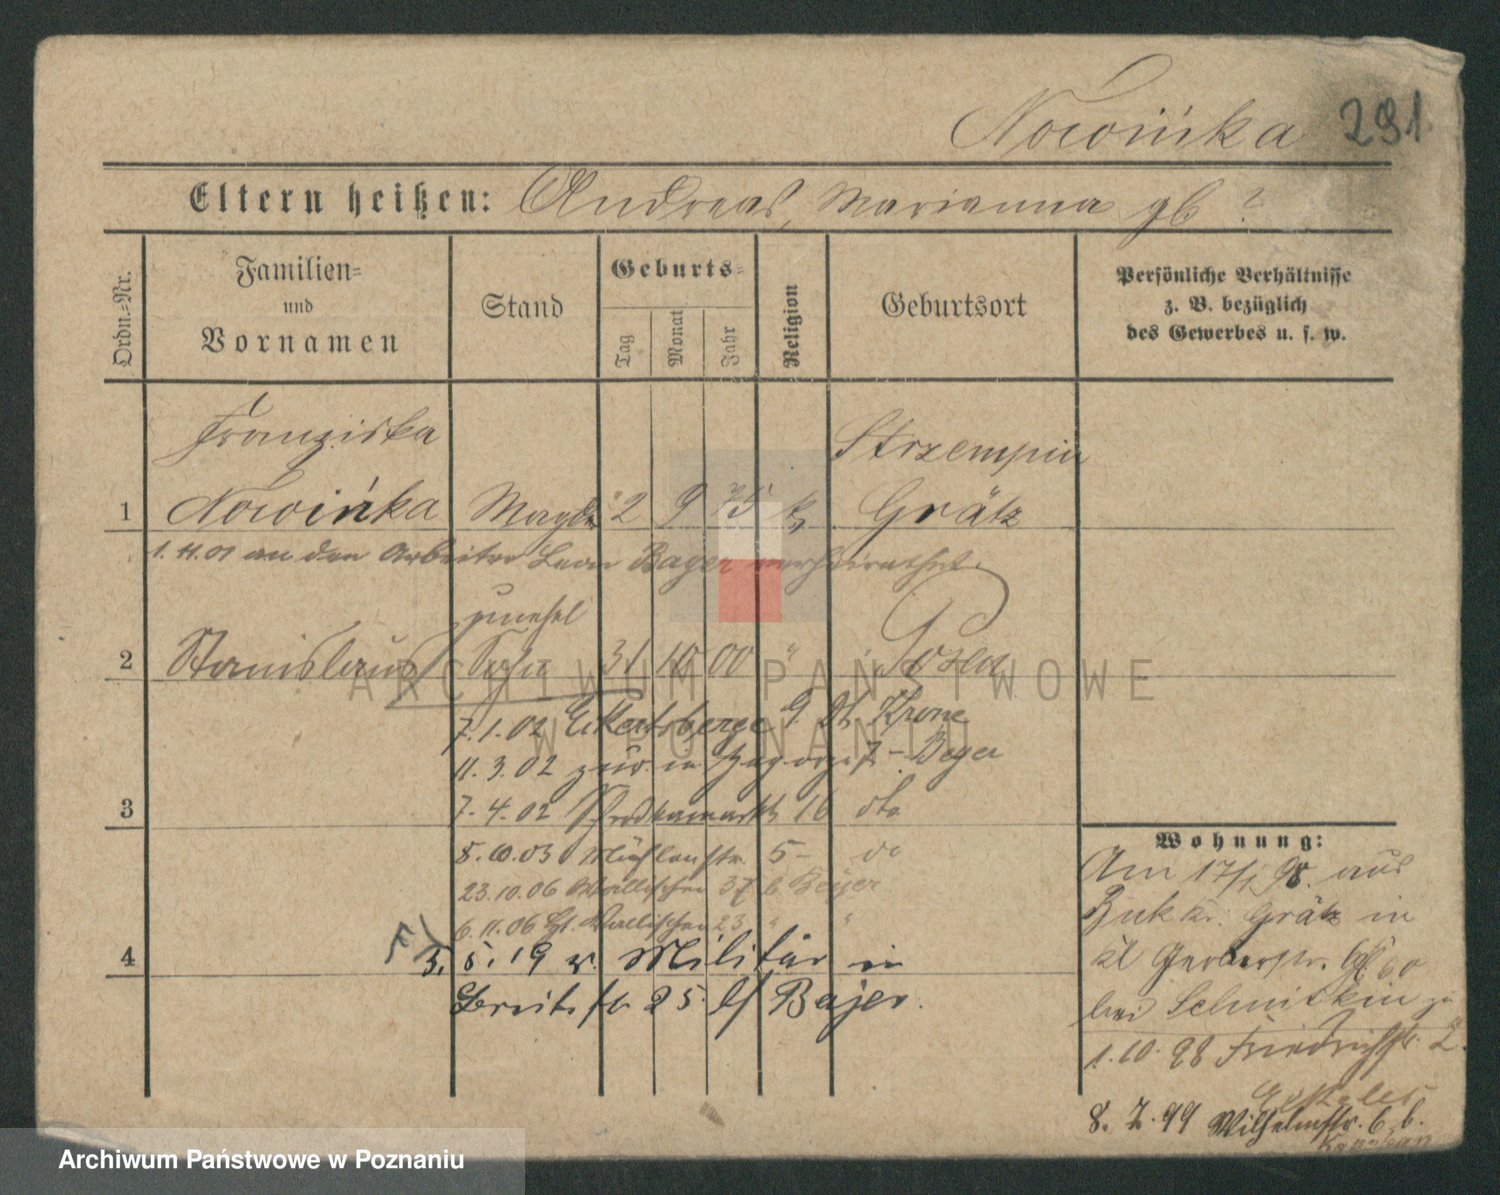 Nowińka 291
Eltern heißen: Andreas, Marianna gb ?
Ordn.-Nr.
Familien-
und
Vornamen
Stand
Geburts-
Tag
Monat
Jahr
Religion
Geburtsort
Persönliche Verhältnisse
z. B. bezüglich
des Gewerbes u. s. w.
Franziska Strzempin
1 Nowińka Magd 2 9 75 k Grätz
1. 11. 01 an den Arbeiter Leon Bayer verheirathet.
unehel
2 Stanislaus Sohn 31 10 00 " Posen
7. 1. 02 Eckertsberge 9 Dt Krone
11. 3. 02 zur. in 7 - Beyer
3 7. 4. 02 16 dto
8. 10. 03 Mühlenstr. 5 - do
23. 10. 06 Wallischei 37 b. Beyer
6. 11. 06 Wallischei 23 " "
4 3. 5. 19 v. Militär in
Breitestr 25. b/ Bajer.
Wohnung:
Am 17/1 98. aus
Buk Kr. Grätz in
kl Gerberstr. 60
bei Schnitkin
1. 10. 98 Friedrichstr. 2.
8. 7. 99 Wilhelmstr. 6 b.
ARCHIWUM PAŃSTWOWE
W POZNANIU
Archiwum Państwowe w Poznaniu